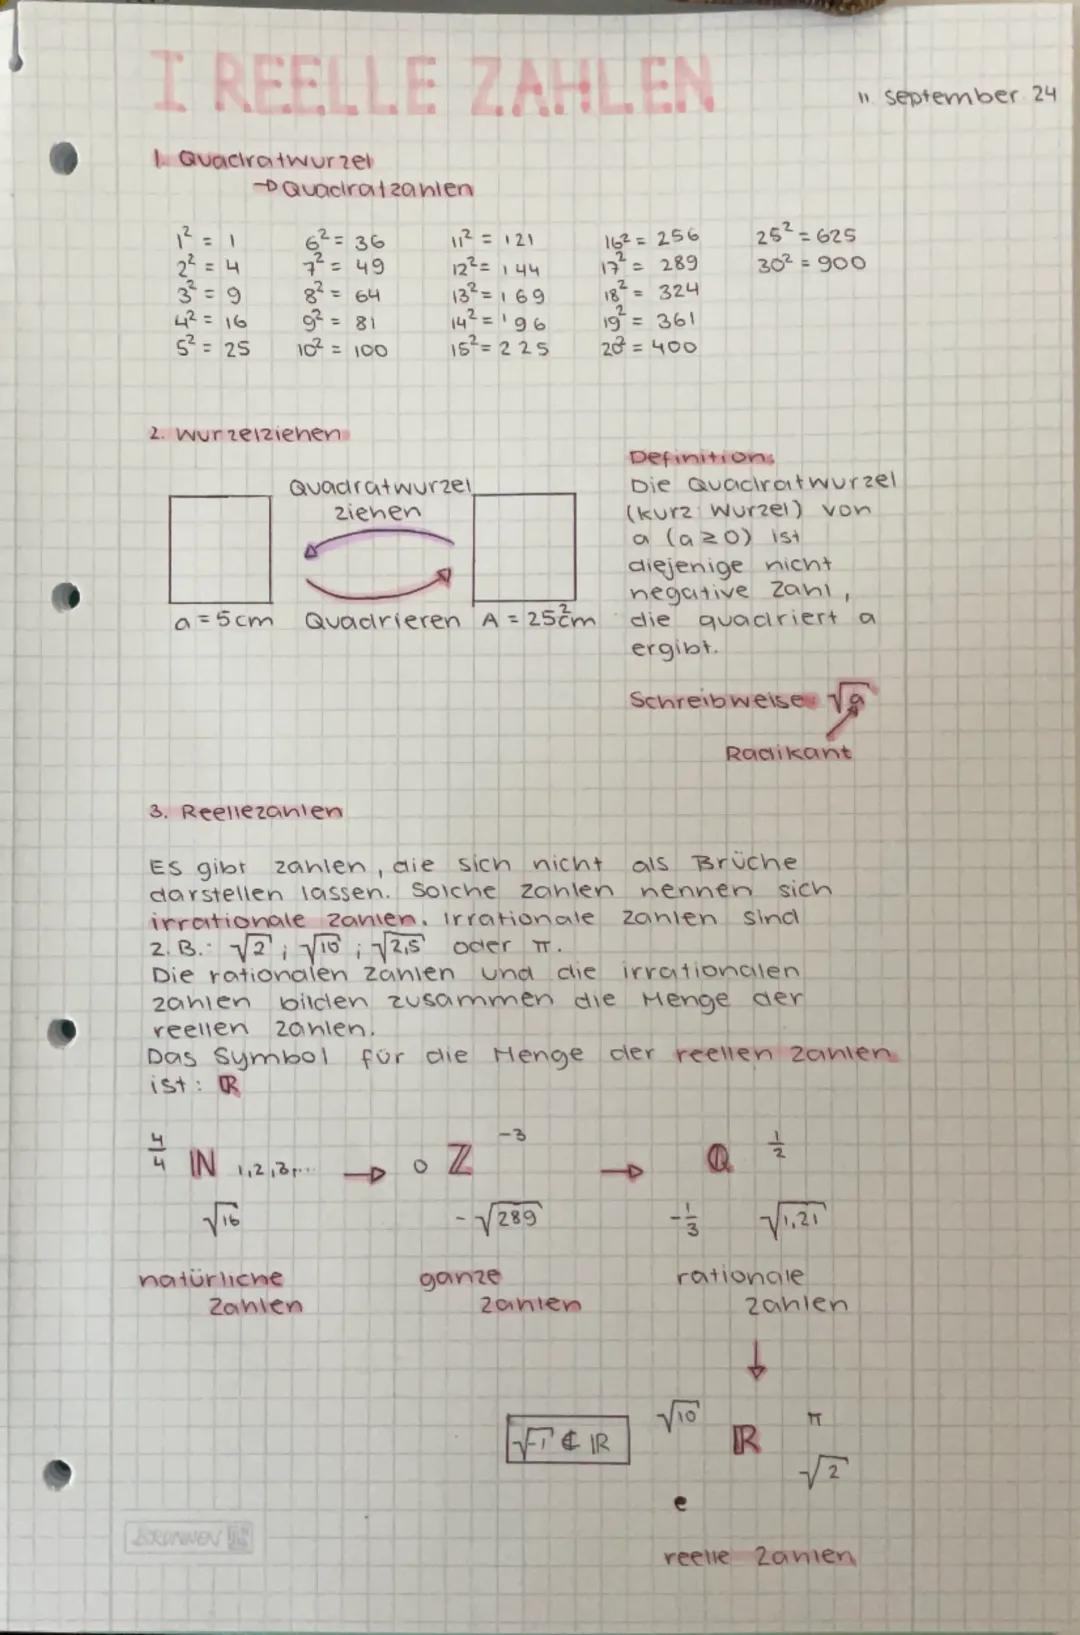 I REELLE ZAHLEN
11. September 24
1. Quadratwurzel
→ Quadratzahlen
1² = 1   6² = 36   11² = 121   16² = 256   25² = 625
2² = 4   7² = 49   12² = 144   17² = 289   30² = 900
3² = 9   8² = 64   13² = 169   18² = 324
4² = 16   9² = 81   14² = 196   19² = 361
5² = 25   10² = 100   15² = 225   20² = 400
2. Wurzelziehen
Quadratwurzel
ziehen
a = 5cm   Quadrieren   A = 25cm²
Definition:
Die Quadratwurzel
(kurz: Wurzel) von
a (a ≥ 0) ist
diejenige nicht
negative Zahl,
die quadriert a
ergibt.
Schreibweise: √a
Radikant
3. Reellezahlen
Es gibt zahlen, die sich nicht als Brüche
darstellen lassen. Solche zahlen nennen sich
irrationale zahlen. Irrationale zahlen sind
z.B.: √2 ; √10 ; √2,5 oder π.
Die rationalen zahlen und die irrationalen
zahlen bilden zusammen die Menge der
reellen zahlen.
Das Symbol für die Menge der reellen zahlen
ist: ℝ
4/4   ℕ 1,2,3,... → 0 ℤ -3 → ℚ 1/2
√16   -√289   -1/3   √1,21
natürliche   ganze   rationale
Zahlen   zahlen   zahlen
↓
√-1 ∉ ℝ   √10   ℝ   π
√2
e
reelle zahlen
BRUNNEN